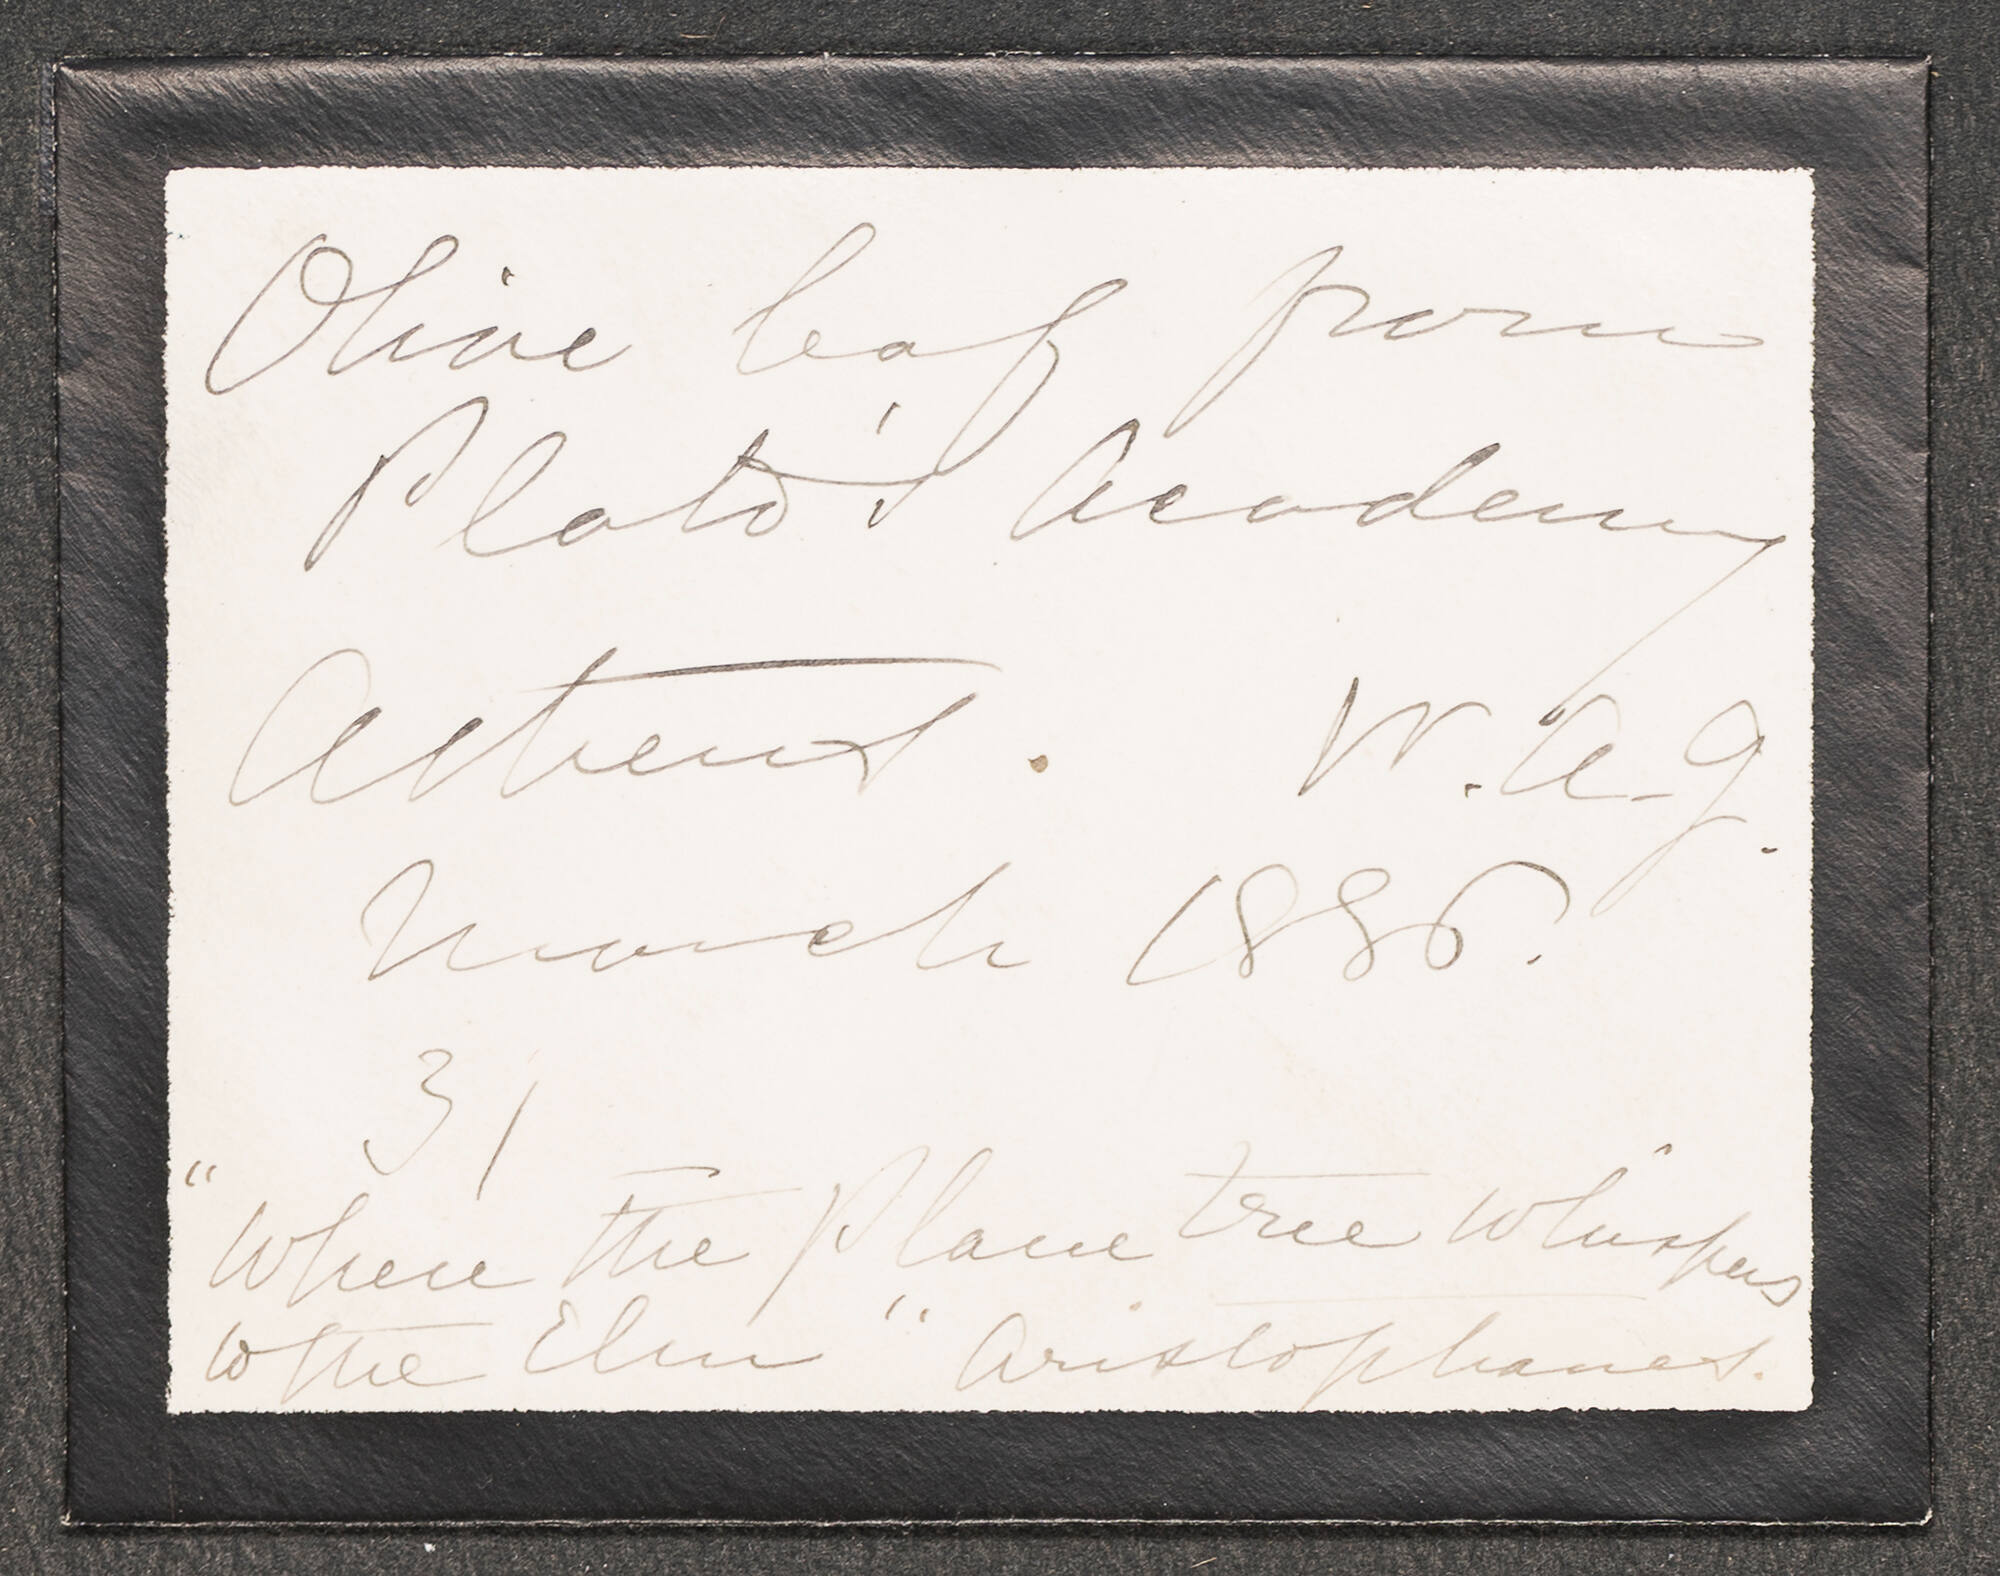 Olive leaf from
Plato's Academy
Athens. W. A. G.
March 1886.
31
"Where the Plane tree Whispers
to the Elm" Aristophanes.